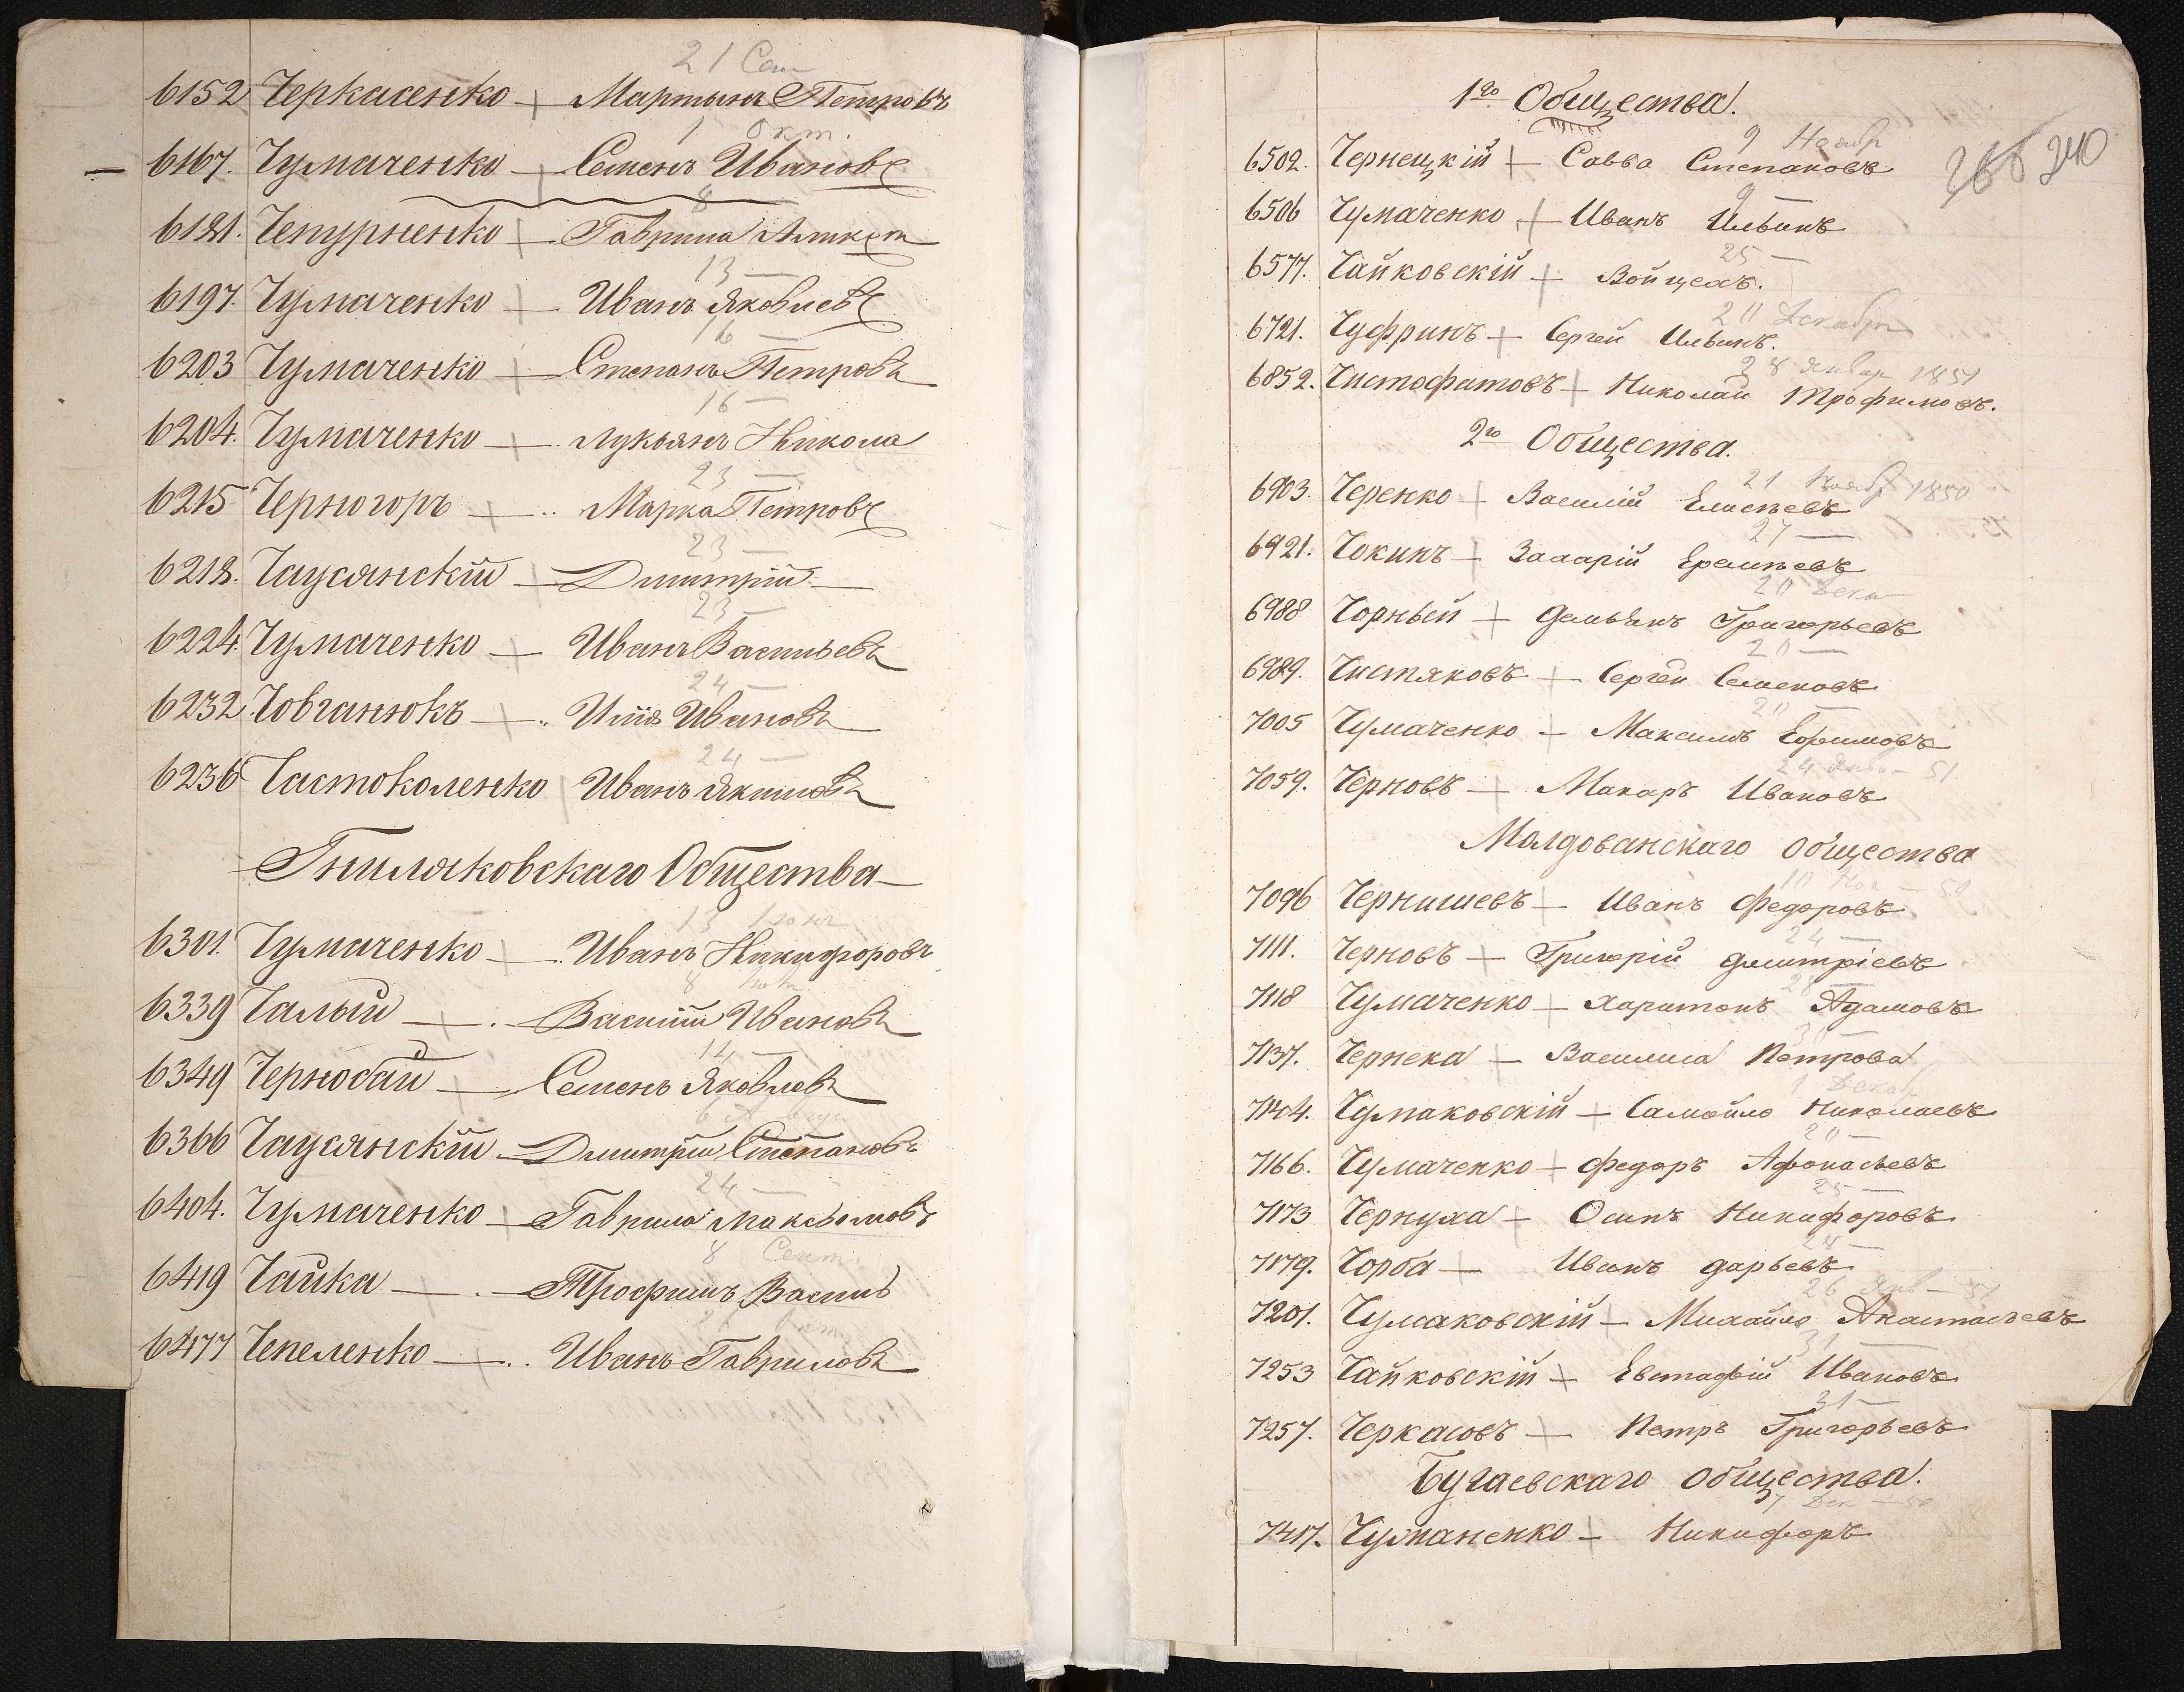 21 Сен
6152 Черкасенко — Мартынъ Петровъ
1 Окт.
— 6167. Чумаченко — Семенъ Ивановъ
8
6181. Чепурненко — Гаврила
13 —
6197. Чумаченко — Иванъ Яковлевъ
16 —
6203 Чумаченко — Степанъ Петровъ
16 —
6204. Чумаченко — Лукьянъ Никола
23 —
6215 Черногоръ — Марка Петровъ
23 —
6218. Чаусянскій — Дмитрій —
23 —
6224. Чумаченко — Иванъ Васильевъ
24 —
6232 Човганюкъ — Илія Ивановъ
24 —
6236 Частоколенко Иванъ Якимовъ
Гниляковскаго Общества —
13
6301. Чумаченко — Иванъ Никифоровъ
8
6339 Чалый — Василій Ивановъ
14 —
6349 Чернобай — Семенъ Яковлевъ
6366 Чаусянскій — Дмитрій Степановъ
24 —
6404. Чумаченко — Гаврила Максымовъ
8 Сент.
6419 Чайка — Трофимъ Васил
6477 Чепеленко — Иванъ Гавриловъ
1го Общества.
240
9 Ноябр
6502. Чернецкій — Савва Степановъ
9 —
6506 Чумаченко — Иванъ Ильинъ
25 —
6577. Чайковскій — Войцехъ.
20 Декабря
6721. Чуфринъ — Сергей Ильинъ.
28 Январ 1851
6852. Чистофатовъ — Николай Трофимовъ.
2го Общества.
21 Ноябр 1850
6903. Черенко — Василій Елисѣевъ
27 —
6921. Чокинъ — Захарій Еремѣевъ
20 Дека
6988 Чорный — Демьянъ Григорьевъ
20 —
6989. Чистяковъ — Сергей Семеновъ
20 —
7005 Чумаченко — Максимъ Ефимовъ
24 Янва — 51
7059. Черновъ — Макаръ Ивановъ
Молдованскаго Общества
10 Ноя — 50
7096 Чернишевъ — Иванъ Федоровъ
24 —
7111. Черновъ — Григорій Дмитріевъ
7118 Чумаченко — Харитонъ Адамовъ
30 —
7137. Чернека — Василиса Петрова
1 Декаб
7144. Чумаковскій — Самойло Николаевъ
20 —
7166. Чумаченко — Федоръ Афонасьевъ
25 —
7173 Чернуха — Осипъ Никифоровъ
7179. Чорба — Иванъ Дарьевъ
26 Янв — 51
7201. Чумаковскій — Михайло Анастасьевъ
31 —
7253 Чайковскій — Евстафій Ивановъ
31 —
7257. Черкасовъ — Петръ Григорьевъ
Бугаевскаго Общества.
7 Дек — 50
7417. Чуманенко — Никифоръ